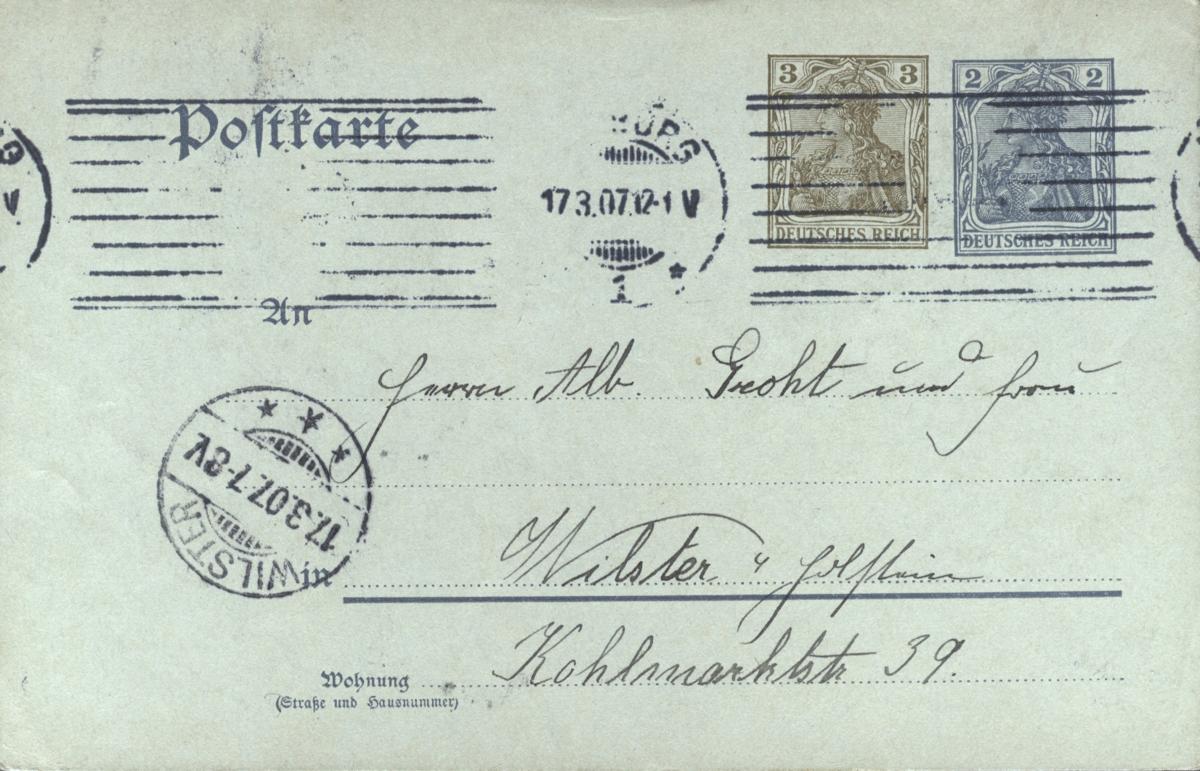 Postkarte
3 3
DEUTSCHES REICH
2 2
DEUTSCHES REICH
17.3.07.12-1 V
1
An
Herrn Alb. Groht und Frau
17.3.07.7-8V
WILSTER
in
Wilster i/ Holstein
Kohlmarktstr 39.
Wohnung
(Straße und Hausnummer)